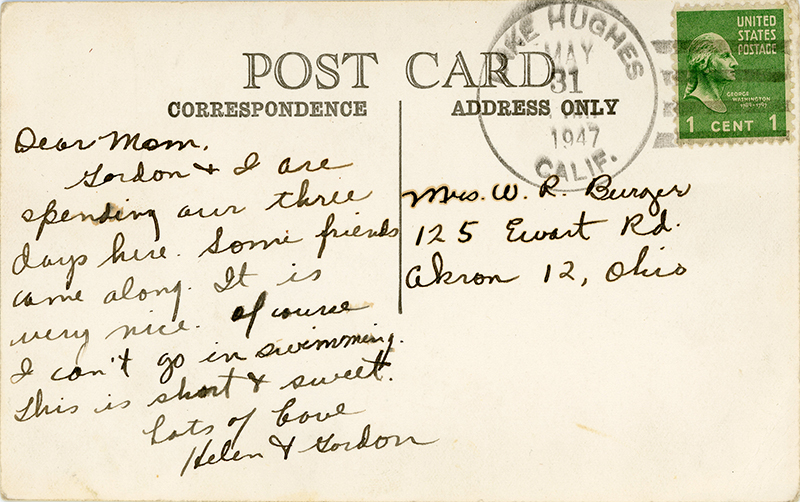 POST CARD
CORRESPONDENCE
ADDRESS ONLY
LAKE HUGHES
MAY
31
1947
CALIF.
UNITED
STATES
POSTAGE
GEORGE
WASHINGTON
1 CENT 1
Dear Mom,
Gordon & I are
spending our three
days here. Some friends
came along. It is
very nice. Of course
I can't go in swimming.
This is short & sweet.
Lots of Love
Helen & Gordon
Mrs. W. R. Burger
125 Ewart Rd.
Akron 12, Ohio